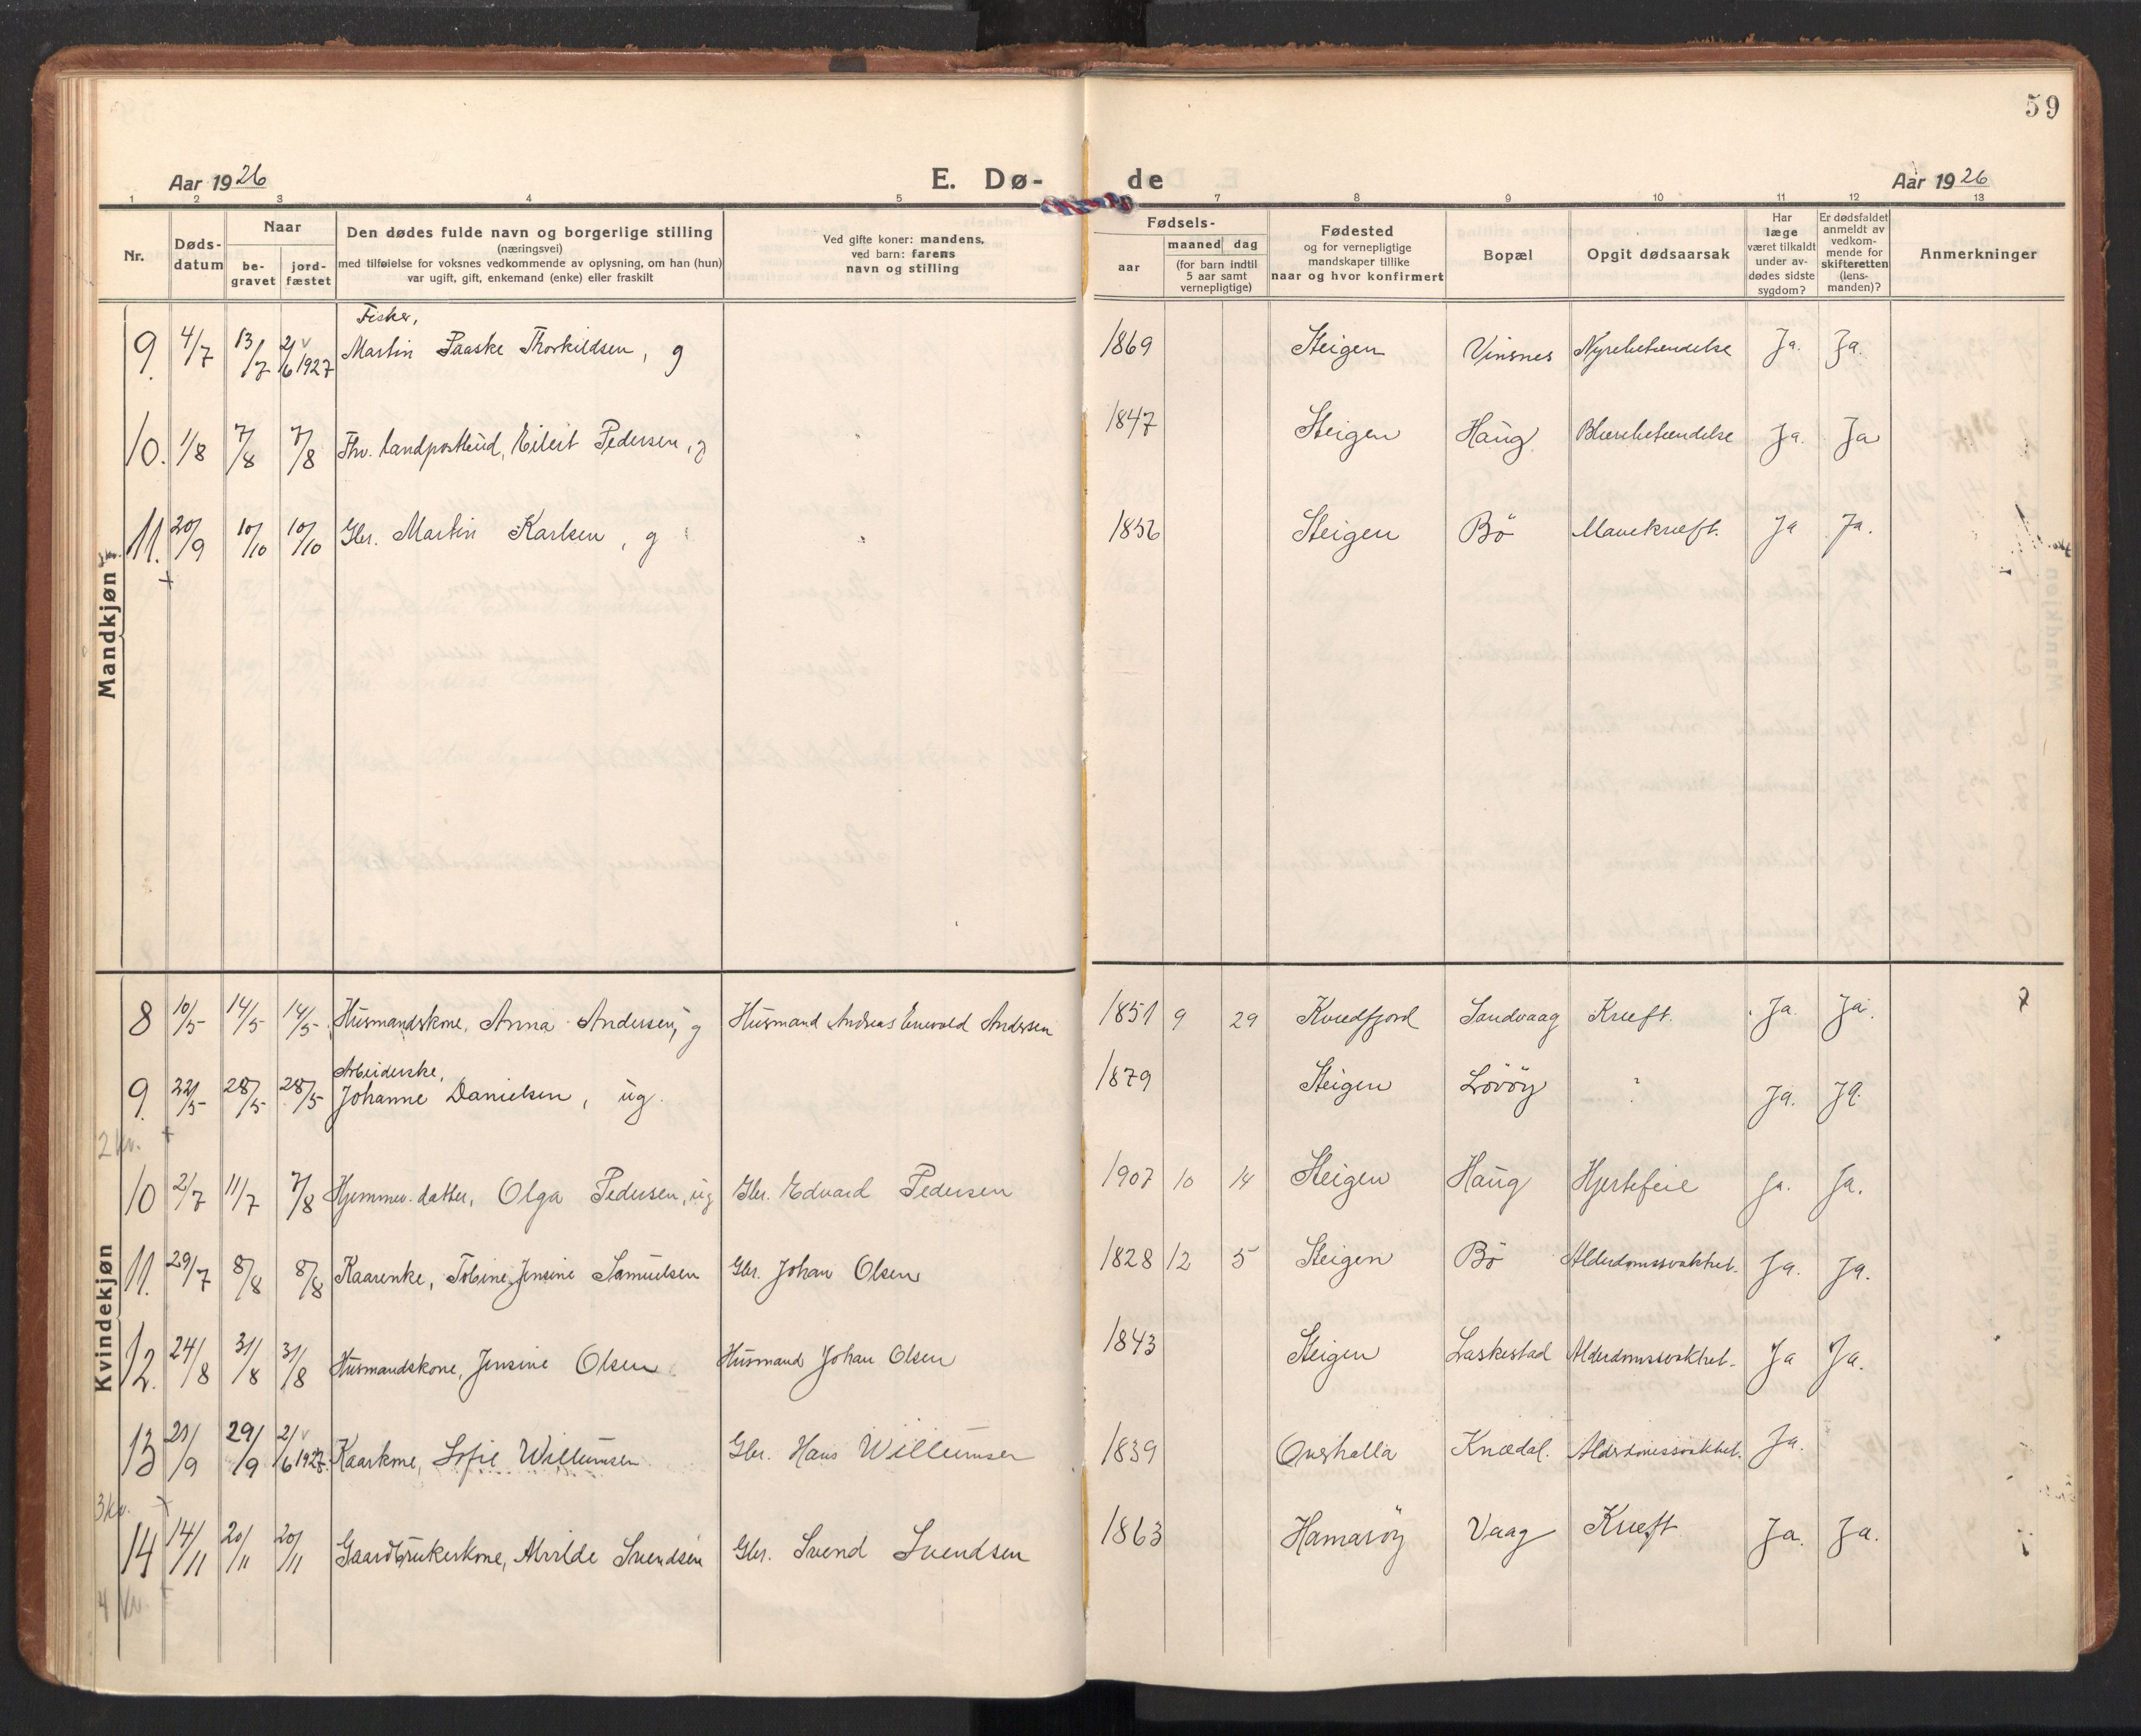 59
Aar 1926 E. Dø- de Aar 1926
1 2 3 4 5 7 8 9 10 11 12 13
Nr.
Døds-
datum
Naar
be-
gravet
jord-
fæstet
Den dødes fulde navn og borgerlige stilling
(næringsvei)
med tilføielse for voksnes vedkommende av oplysning, om han (hun)
var ugift, gift, enkemand (enke) eller fraskilt
Ved gifte koner: mandens,
ved barn: farens
navn og stilling
Fødsels-
aar
maaned dag
(for barn indtil
5 aar samt
vernepligtige)
Fødested
og for vernepligtige
mandskaper tillike
naar og hvor konfirmert
Bopæl
Opgit dødsaarsak
Har
læge
været tilkaldt
under av-
dødes sidste
sygdom?
Er dødsfaldet
anmeldt av
vedkom-
mende for
skifteretten
(lens-
manden)?
Anmerkninger
Mandkjøn
Fisker,
9. 4/7 13/7 2/6 1927 Martin Faaske Thorkildsen, g 1869 Steigen Vinsnes Nyrebetændelse Ja. Ja.
10. 1/8 7/8 7/8 Fhv. landpostbud, Eilert Pedersen, g 1847 Steigen Haug Blærebetændelse Ja. Ja
11. 20/9 10/10 10/10 Gbr. Martin Karlsen, g 1856 Steigen Bö Mavekræft. Ja Ja.
Kvindekjøn
8 10/5 14/5 14/5 Husmandskone, Anna Andersen, g Husmand Andreas Enevold Andersen 1851 9 29 Kvædfjord Sandvaag Kræft. Ja Ja.
Arbeiderske,
9. 22/5 28/5 28/5 Johanne Danielsen, ug. 1879 Steigen Lövöy ? Ja. Ja.
2 Kv. +
10 2/7 11/7 7/8 Hjemmev. datter, Olga Pedersen, ug Gbr. Edvard Pedersen 1907 10 14 Steigen Haug Hjertefeil Ja. Ja.
11. 29/7 8/8 8/8 Kaarenke, Tobine Jensine Samuelsen Gbr. Johan Olsen 1828 12 5 Steigen Bö Alderdomssvakhet. Ja. Ja.
12. 24/8 31/8 31/8 Husmandskone, Jensine Olsen Husmand Johan Olsen 1843 Steigen Laskestad Alderdomssvakhet. Ja Ja.
13 21/9 29/9 2/6 1927. Kaarkone, Sofie Willumsen Gbr. Hans Willumsen 1839 Overhalla Knædal. Alderdomssvakhet. Ja.
3 Kv. +
14 14/11 20/11 20/11 Gaardbrukerkone, Alvilde Svendsen Gbr. Svend Svendsen 1863 Hamaröy Vaag Kræft Ja. Ja.
4 Kv. +